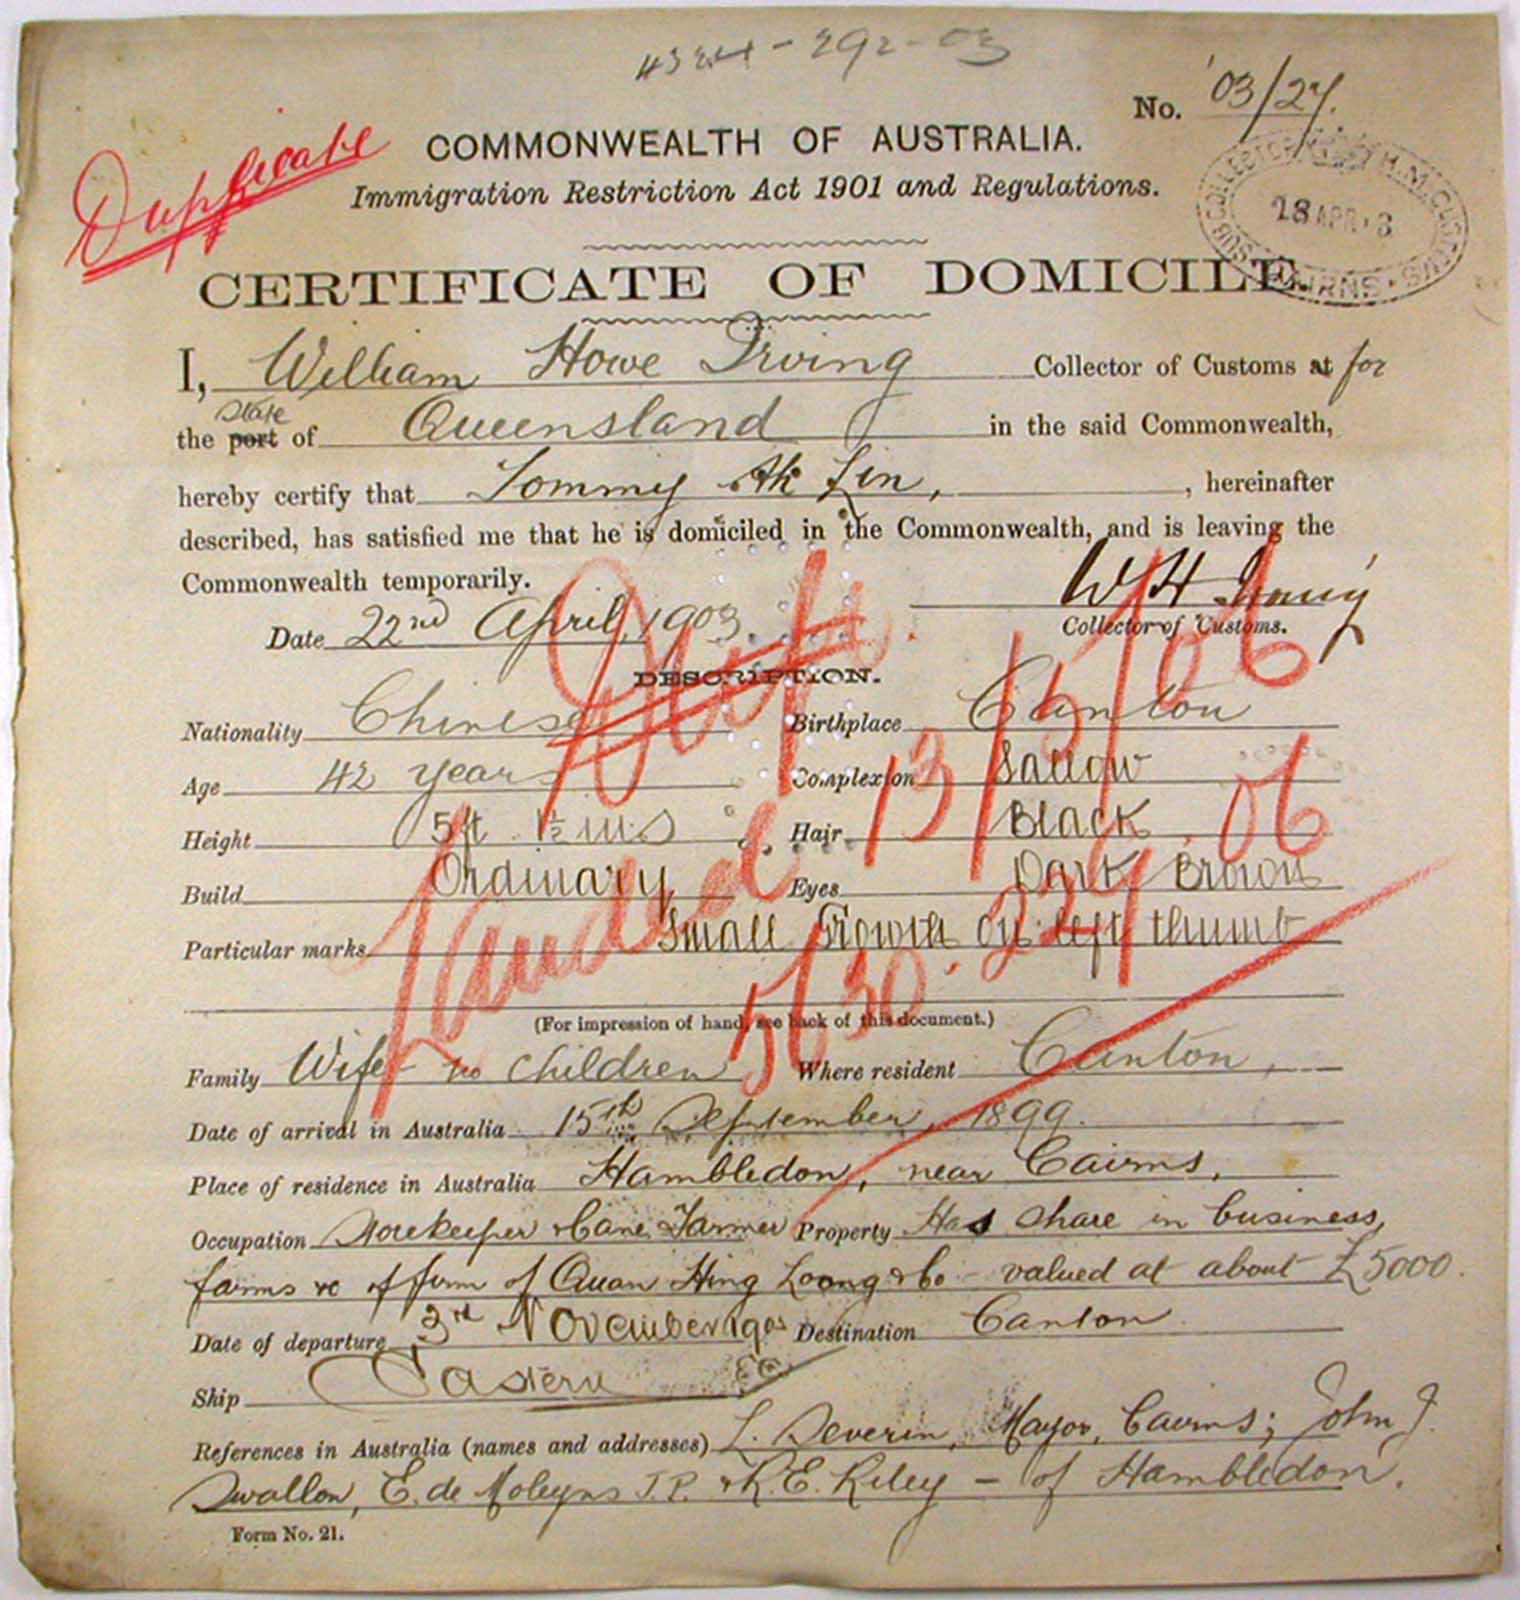 No. '03/27.
COMMONWEALTH OF AUSTRALIA.
Duplicate
Immigration Restriction Act 1901 and Regulations.
28 APR. 3
CERTIFICATE OF DOMICILE.
I, William Howe Irving Collector of Customs at for
the port State of Queensland in the said Commonwealth,
hereby certify that Tommy Ah Lin, , hereinafter
described, has satisfied me that he is domiciled in the Commonwealth, and is leaving the
Commonwealth temporarily.
W H Irving
Date 22nd April, 1903. Collector of Customs.
DESCRIPTION.
Nationality Chinese Birthplace Canton
Age 42 years Complexion Sallow
Height 5 ft 1½ ins Hair Black
Build Ordinary Eyes Dark Brown
Particular marks Small Growth on left thumb
Landed 13/5/06
(For impression of hand, see back of this document.)
Family Wife no children Where resident Canton,
Date of arrival in Australia 15th September, 1899.
Place of residence in Australia Hambledon, near Cairns,
Occupation Storekeeper & Cane Farmer Property Has share in business,
farms &c of firm of Quan Hing Loong & Co - valued at about £5000.
Date of departure 3rd November 1903 Destination Canton
Ship Eastern
References in Australia (names and addresses) L. Severin, Mayor, Cairns; John J.
Swallow, E. de Moleyns J.P. & R. E. Riley - of Hambledon.
Form No. 21.